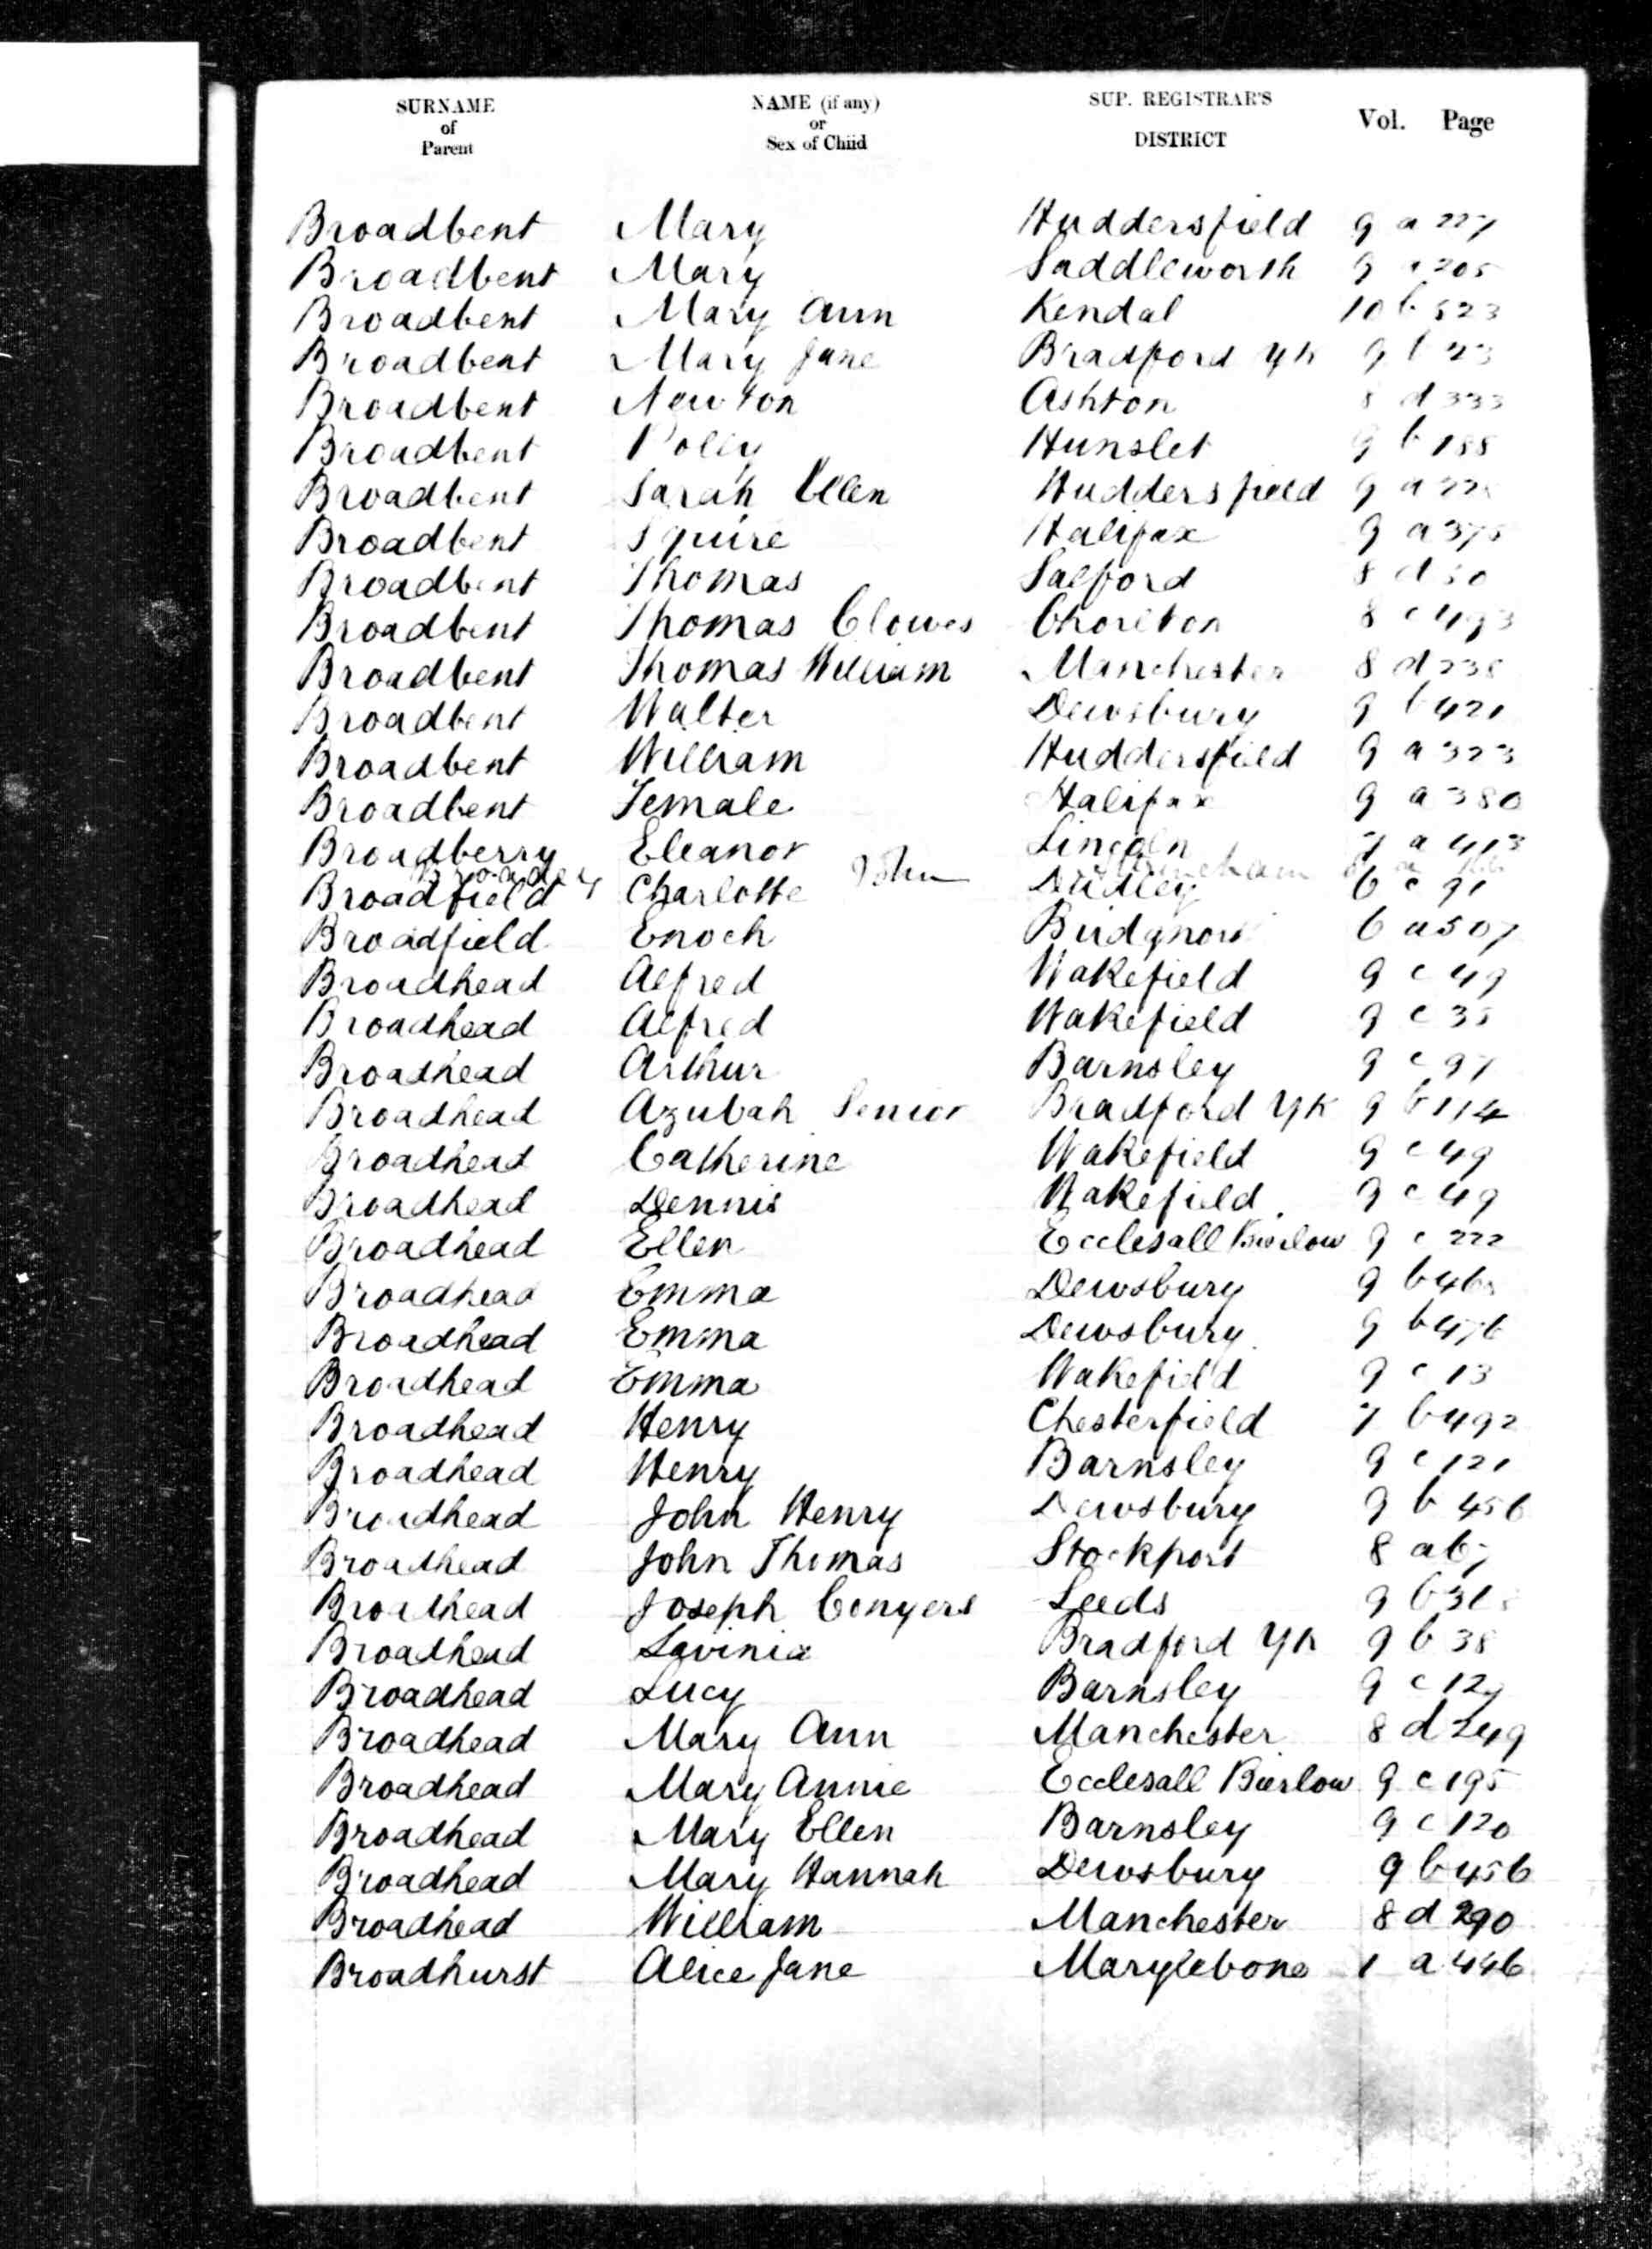 SURNAME of Parent NAME (if any) or Sex of Child SUP. REGISTRAR'S DISTRICT Vol. Page
Broadbent Mary Huddersfield 9 a 227
Broadbent Mary Saddleworth 9 a 205
Broadbent Mary Ann Kendal 10 b 523
Broadbent Mary Jane Bradford Yk 9 b 23
Broadbent Newton Ashton 8 d 333
Broadbent Polly Hunslet 9 b 188
Broadbent Sarah Ellen Huddersfield 9 a
Broadbent Squire Halifax 9 a 375
Broadbent Thomas Salford 8 d 50
Broadbent Thomas Clowes Chorlton 8 c 493
Broadbent Thomas William Manchester 8 d 238
Broadbent Walter Dewsbury 9 b 421
Broadbent William Huddersfield 9 a 323
Broadbent Female Halifax 9 a 380
Broadberry Eleanor Lincoln 7 a 413
Broadey John
Broadfield Charlotte Dudley 6 c 91
Broadfield Enoch Bridgnor 6 a 507
Broadhead Alfred Wakefield 9 c 49
Broadhead Alfred Wakefield 9 c 35
Broadhead Arthur Barnsley 9 c 97
Broadhead Azubah Senior Bradford Yk 9 b 114
Broadhead Catherine Wakefield 9 c 49
Broadhead Dennis Wakefield 9 c 49
Broadhead Ellen Ecclesall Bierlow 9 c 222
Broadhead Emma Dewsbury 9 b
Broadhead Emma Dewsbury 9 b 476
Broadhead Emma Wakefield 9 c 13
Broadhead Henry Chesterfield 7 b 492
Broadhead Henry Barnsley 9 c 121
Broadhead John Henry Dewsbury 9 b 456
Broadhead John Thomas Stockport 8 a 67
Broadhead Joseph Conyers Leeds 9 b
Broadhead Lavinia Bradford Yk 9 b 38
Broadhead Lucy Barnsley 9 c 129
Broadhead Mary Ann Manchester 8 d 249
Broadhead Mary Annie Ecclesall Bierlow 9 c 195
Broadhead Mary Ellen Barnsley 9 c 120
Broadhead Mary Hannah Dewsbury 9 b 456
Broadhead William Manchester 8 d 290
Broadhurst Alice Jane Marylebone 1 a 446